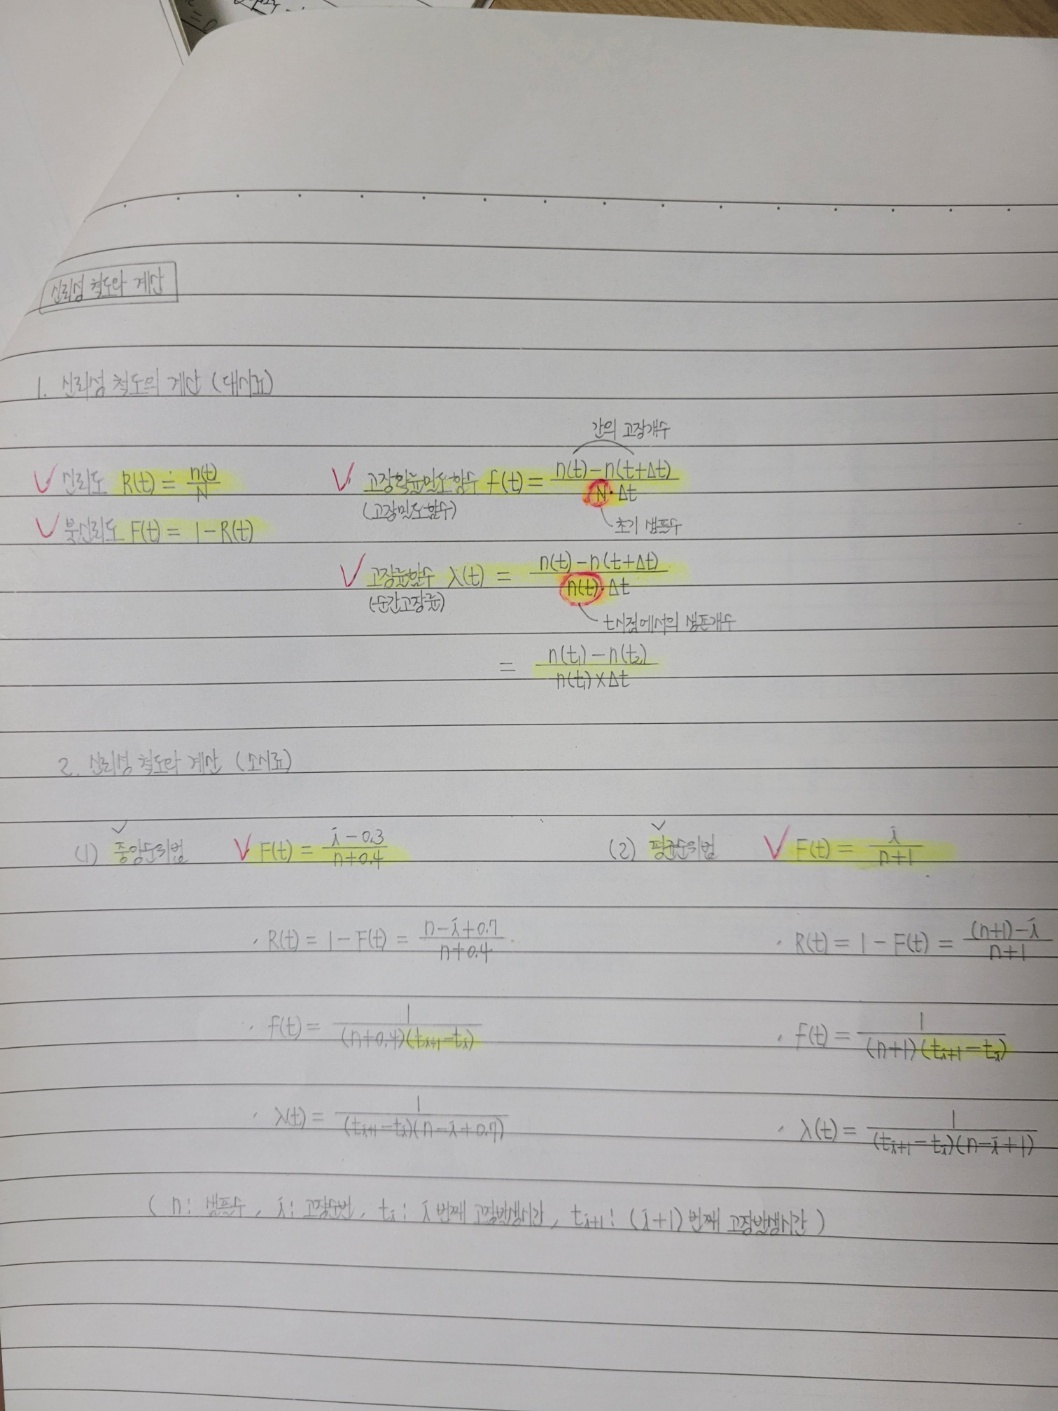 신뢰성 척도와 계산
1. 신뢰성 척도의 계산 (대시료)
간의 고장개수
신뢰도 R(t) = n(t)/N
고장확률밀도함수 f(t) = n(t)-n(t+Δt) / N·Δt
(고장밀도함수)
초기 샘플수
불신뢰도 F(t) = 1-R(t)
고장률함수 λ(t) = n(t)-n(t+Δt) / n(t)·Δt
(순간고장률)
t시점에서의 샘플개수
= n(t₁)-n(t₂) / n(t₁)×Δt
2. 신뢰성 척도와 계산 (소시료)
(1) 중앙순위법 F(t) = i-0.3 / n+0.4
(2) 평균순위법 F(t) = i / n+1
· R(t) = 1-F(t) = n-i+0.7 / n+0.4
· R(t) = 1-F(t) = (n+1)-i / n+1
· f(t) = 1 / (n+0.4)(tᵢ₊₁-tᵢ)
· f(t) = 1 / (n+1)(tᵢ₊₁-tᵢ)
· λ(t) = 1 / (tᵢ₊₁-tᵢ)(n-i+0.7)
· λ(t) = 1 / (tᵢ₊₁-tᵢ)(n-i+1)
( n: 샘플수, i: 고장순번, tᵢ: i번째 고장발생시간, tᵢ₊₁: (i+1)번째 고장발생시간 )